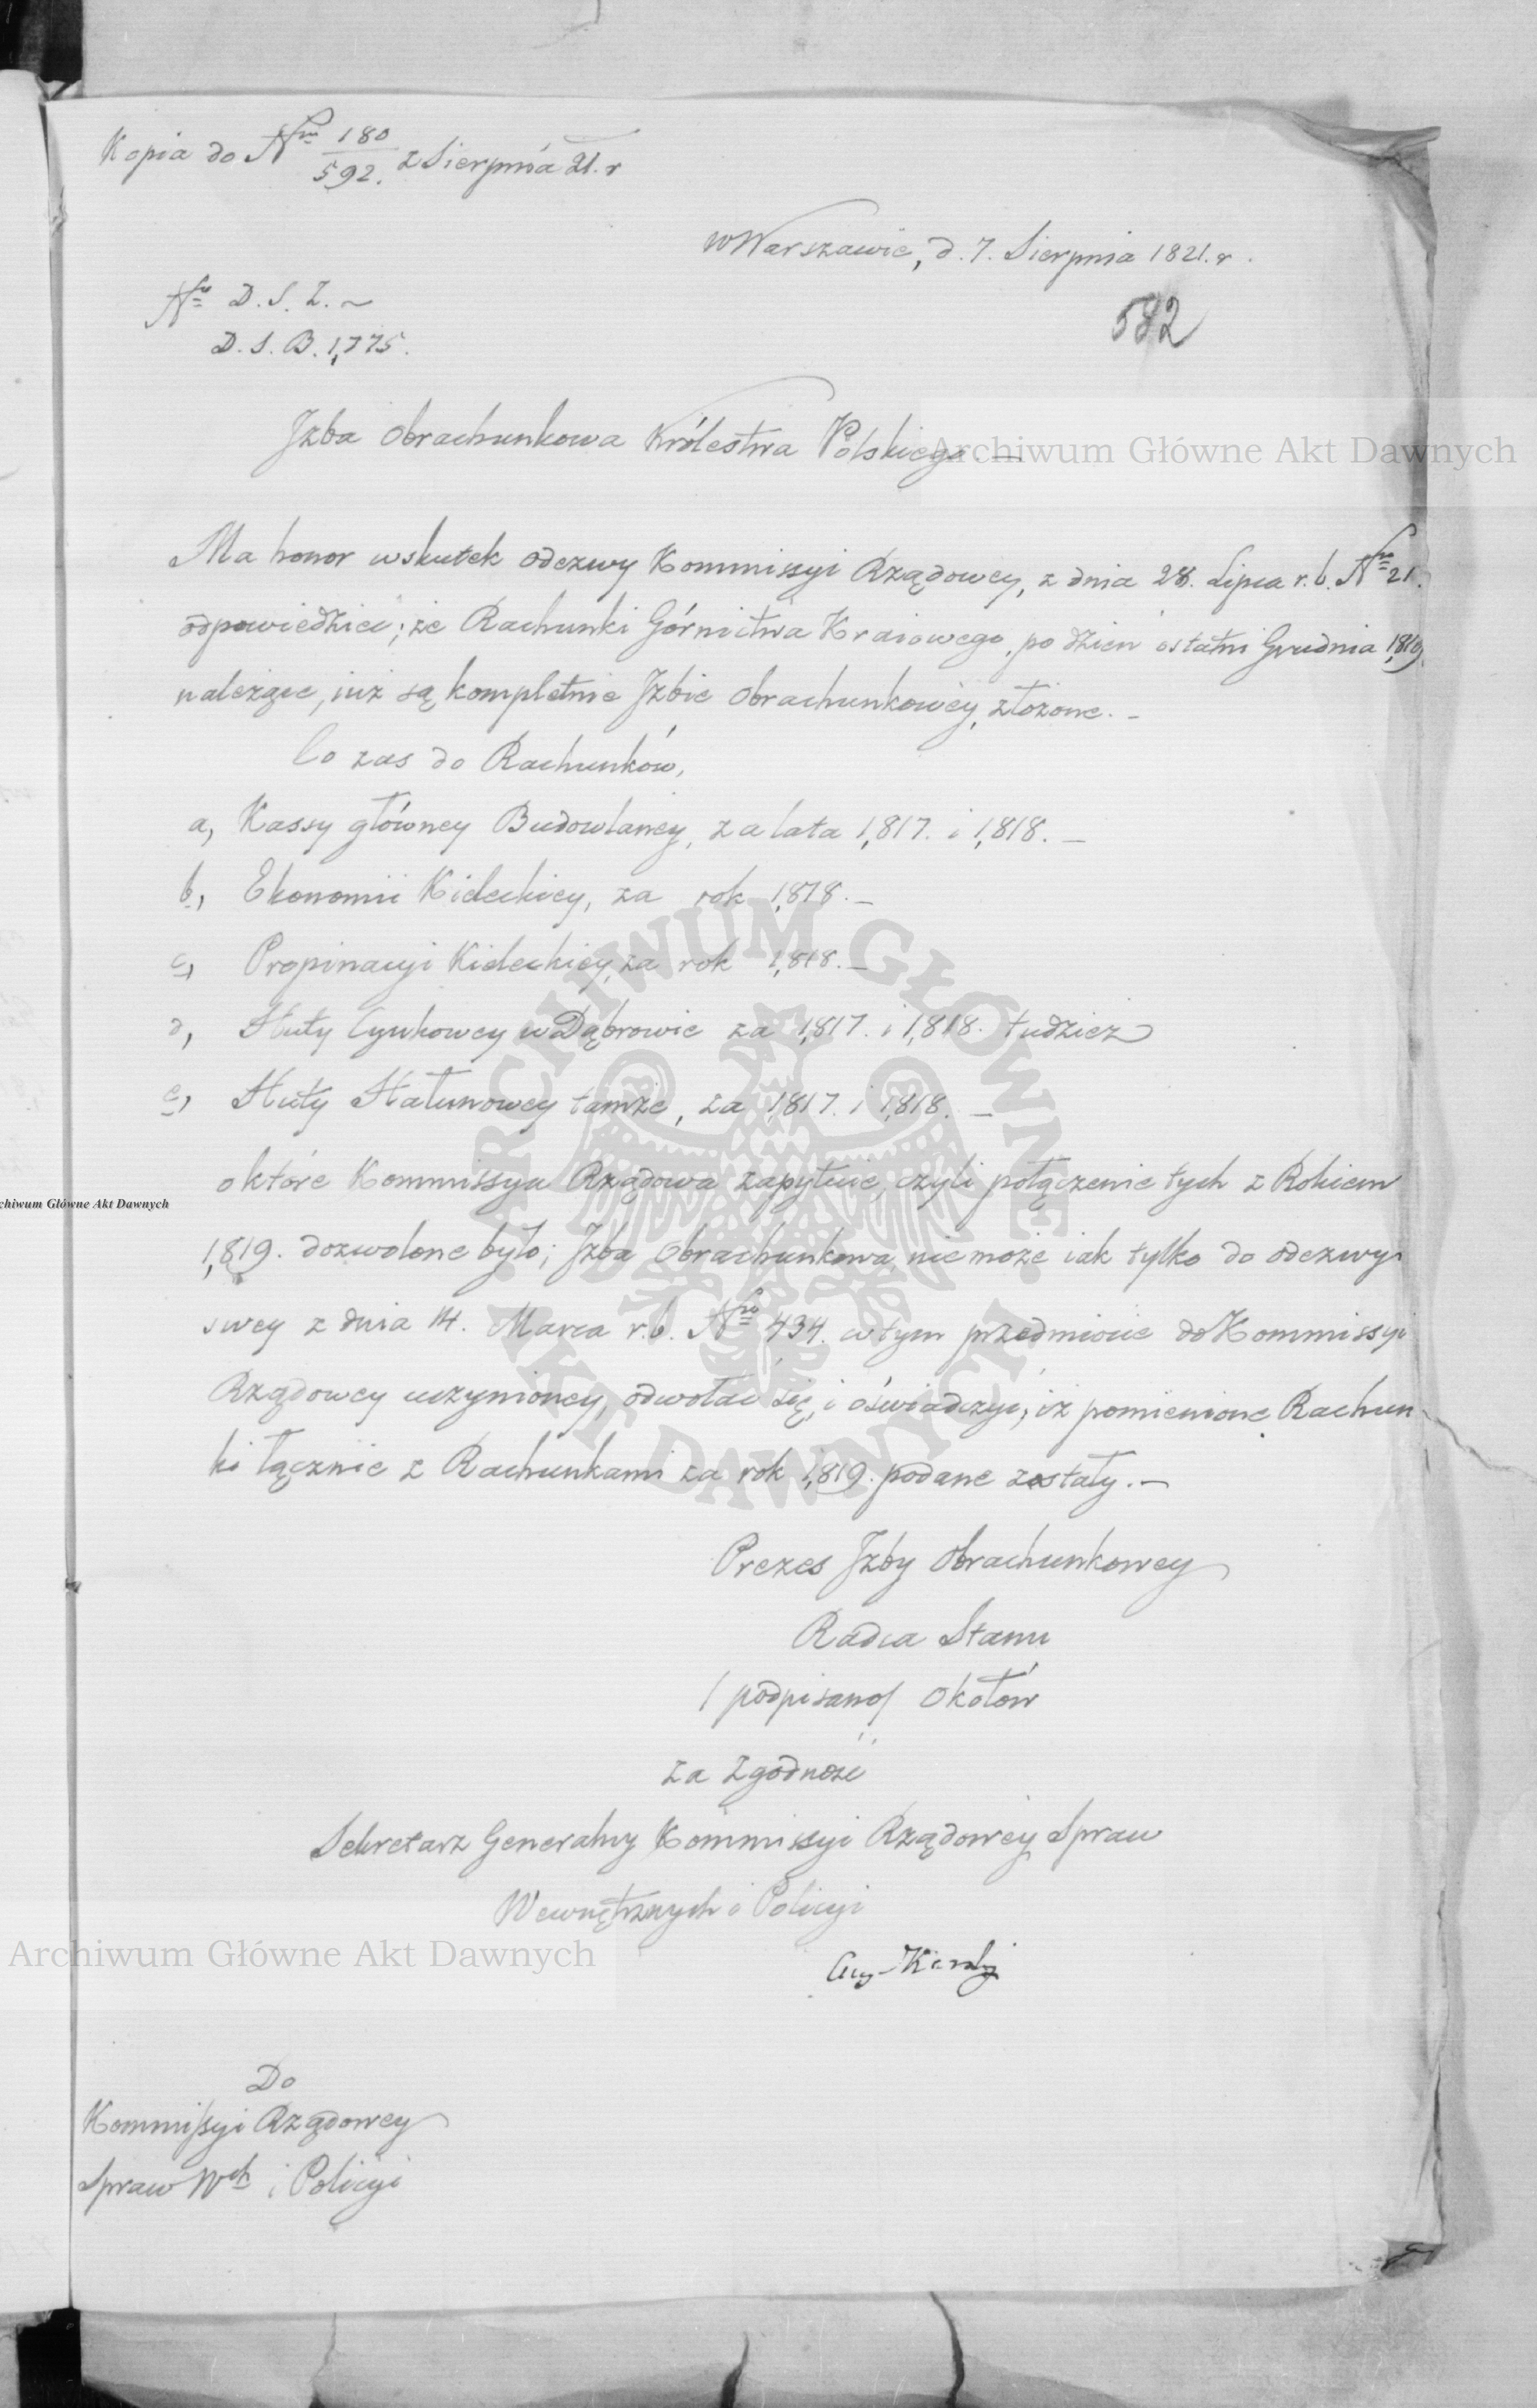 Kopia do Nru 180/592. z Sierpnia 21. r
w Warszawie, d. 7. Sierpnia 1821. r.
Nro D. S. Z. ~
D. S. B. 1,775.
582
Jzba Obrachunkowa Królestwa Polskiego. —
Archiwum Główne Akt Dawnych
Ma honor wskutek odezwy Kommissyi Rządowey, z dnia 28. Lipca r. b. Nro 21.
odpowiedzieć; że Rachunki Górnictwa Kraiowego, po dzień ostatni Grudnia 1,819.
należące, iuż są kompletnie Jzbie Obrachunkowéy, złożone. —
Co zas do Rachunków,
a, Kassy główney Budowlanéy, za lata 1,817. i 1,818. —
b, Ekonomii Kieleckiey, za rok 1,818. —
c, Propinacyi Kieleckiey, za rok 1,818. —
d, Huty Cynkowey w Dąbrowie za 1,817. i 1,818. tudzież
e, Huty Hałunowey tamże, za 1,817. i 1,818. —
o które Kommissya Rządowa zapytuie, czyli połączenie tych z Rokiem
Archiwum Główne Akt Dawnych
1,819. dozwolone było; Jzba Obrachunkowa, nie może iak tylko do odezwy
swey z dnia 14. Marca r. b. Nro 434. w tym przedmiocie do Kommissyi
Rządowey uczynioney, odwołać się, i oświadczyć, iż pomienione Rachun-
ki łącznie z Rachunkami za rok 1,819. podane zostały. —
ARCHIWUM GŁÓWNE AKT DAWNYCH
Prezes Jzby Obrachunkowey
Radca Stanu
/podpisano/ Okołów
Za Zgodność
Sekretarz Generalny Kommissyi Rządowéy Spraw
Wewnętrznych i Policyi
Archiwum Główne Akt Dawnych
Do
Kommissyi Rządowey
Spraw Wch i Policyi